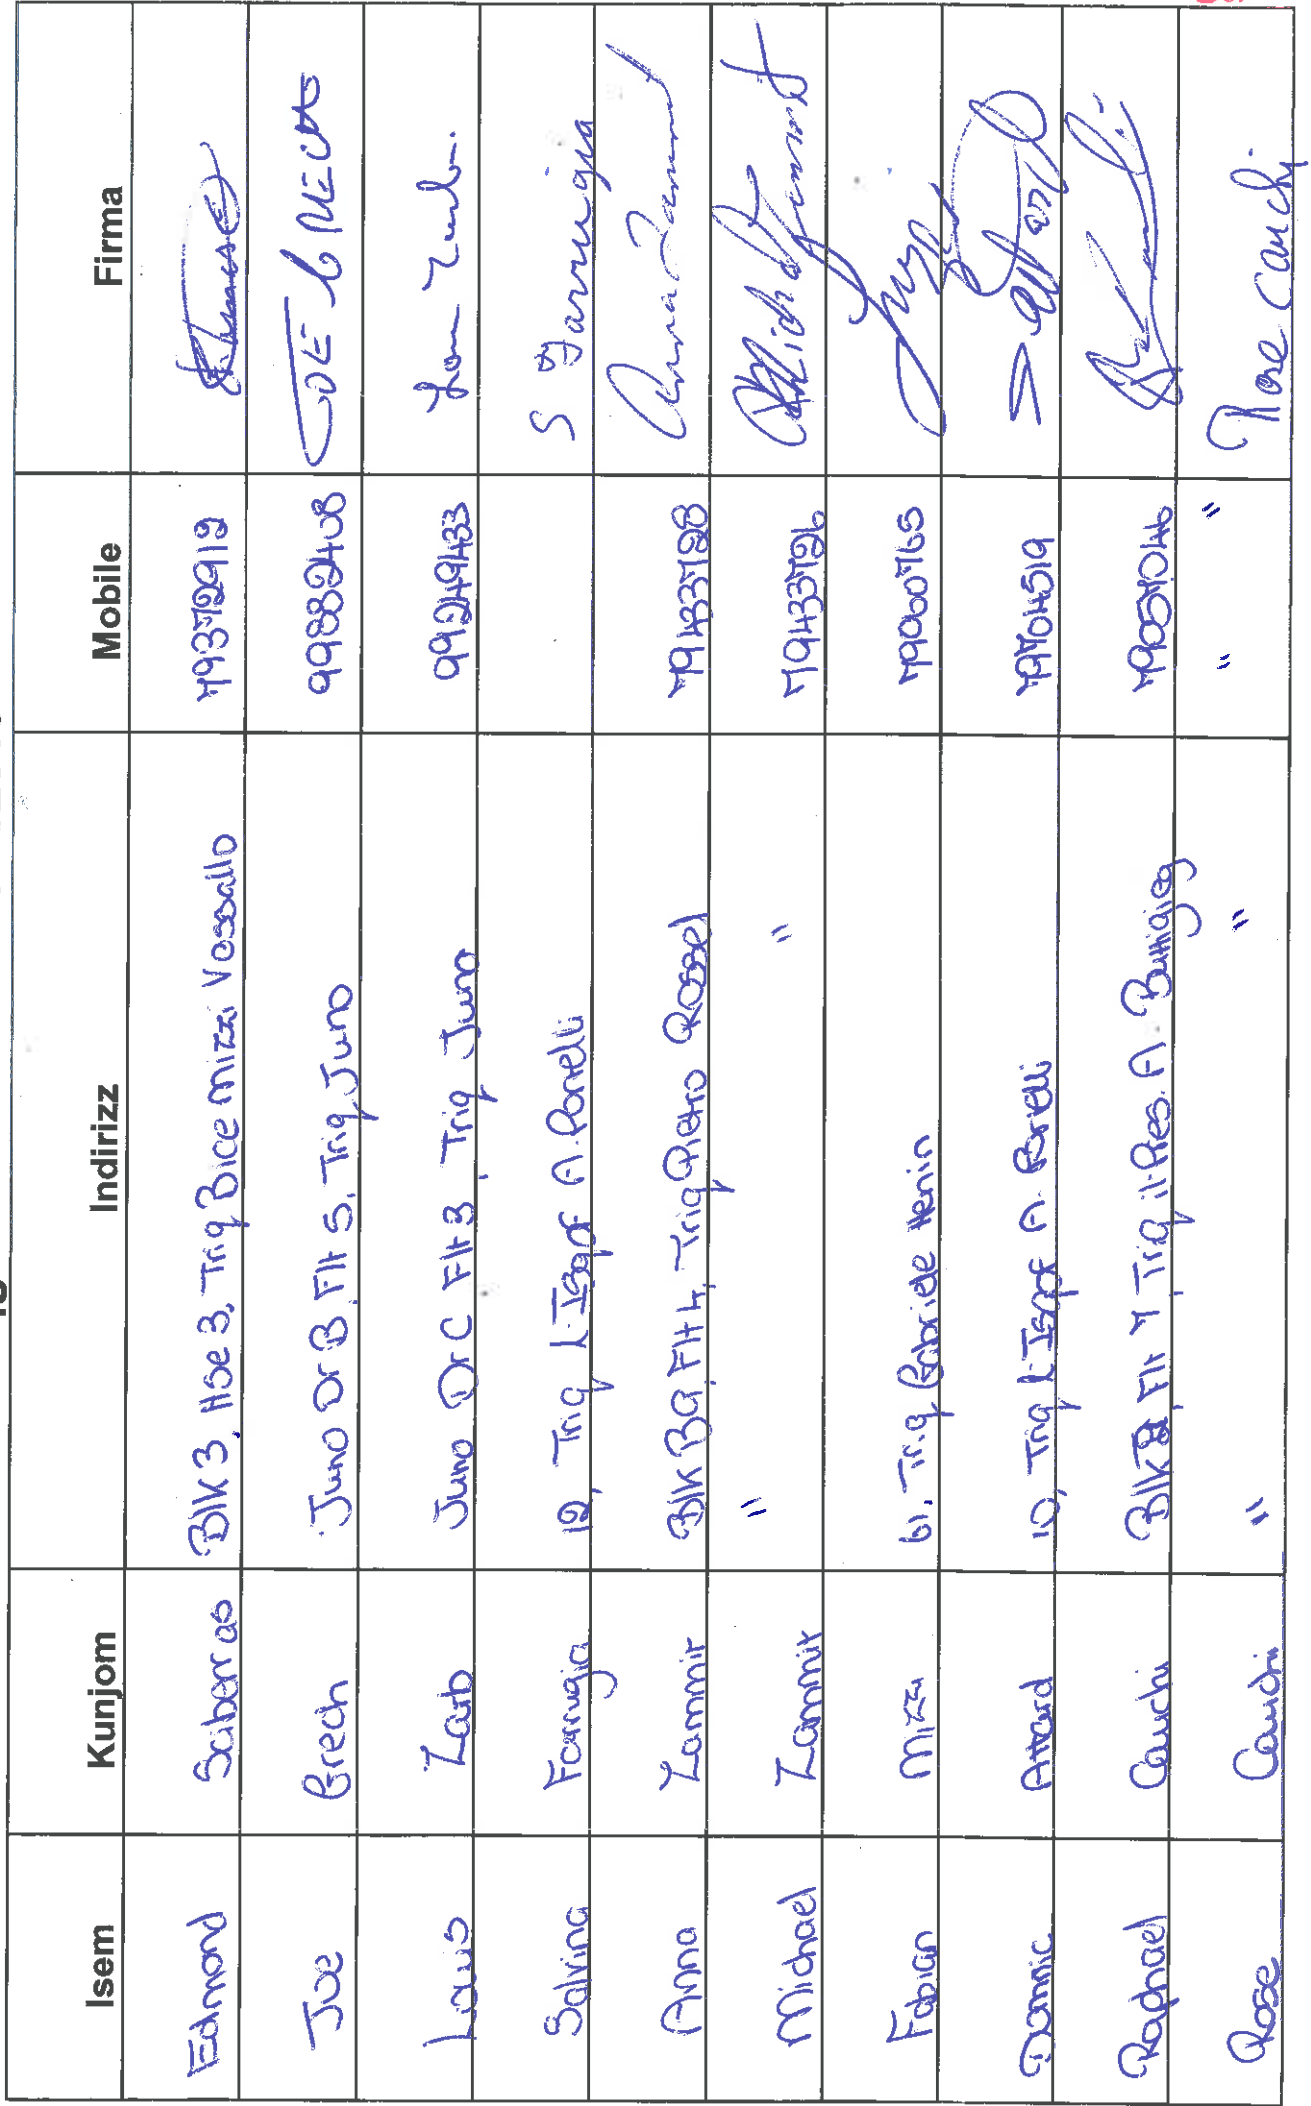 Isem Kunjom Indirizz Mobile Firma
Edmond Saborras Blk 3, Hse 3, Triq Bice Mizzi Vassallo 79372919
Joe Grech Juno Dr B Flt 5, Triq Juno 99882408 JOE GRECH
Louis Zarb Juno Dr C Flt 3, Triq Juno 99249433
Salvina Farrugia 12, Triq L-Isqof A. Portelli S Farrugia
Anna Zammit Blk B9, Flt 4, Triq Pietro Rossel 79433728 Anna Zammit
Michael Zammit " " 79433726
Fabian Mizzi 61, Triq Gabriele Henin 79900765
Domnic Attard 10, Triq L-Isqof A. Portelli 79704519
Raphael Cauchi Flt 7 Triq il-Pres. A Buttigieg 79057046
Rose Cauchi " " " " Rose Cauchi